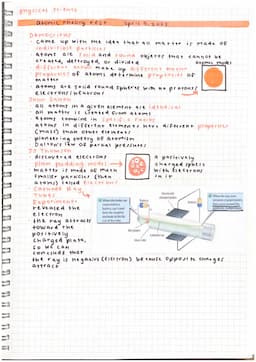 physical science
atomic theory test april 3, 2023
Democritus
came up with the idea that all matter is made of
individual particles
atoms are solid and round objects that cannot be
created, destroyed, or divided
different atoms make up different matter
atomic model
properties of atoms determine properties of
matter
atoms are solid round spheres with no protons/
electrons/neutrons
John Dalton
all atoms in a given element are identical
all matter is created from atoms
atoms combined in specific ratios
atoms in different elements have different properties
(mass) than other elements
pioneering theory of atomism
Dalton's law of partial pressures
JJ Thomson
discovered electrons
plum pudding model
a positively
charged sphere
with electrons
in it
matter is made of much
smaller particles (than
atoms) called electrons
Cathode Ray
Tubes
Experiment
revealed the
electron
the ray attracts
toward the
positively
charged plate,
so we can
conclude that
the ray is negative (electron) because opposite charges
attract